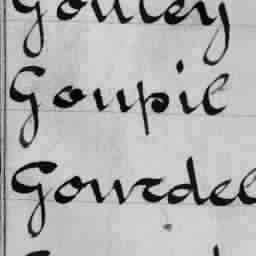 Gouley
Goupil
Gourdel